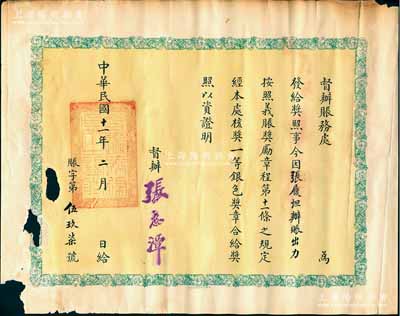 督辦賬務處 為
發給獎照事今因張慶担辦賬出力
按照義賬獎勵章程第十一條之規定
經本處核獎一等銀色獎章合給獎
照以資證明
督辦 張志潭
中華民國十一年二月 日給
賬字第伍玖柒號